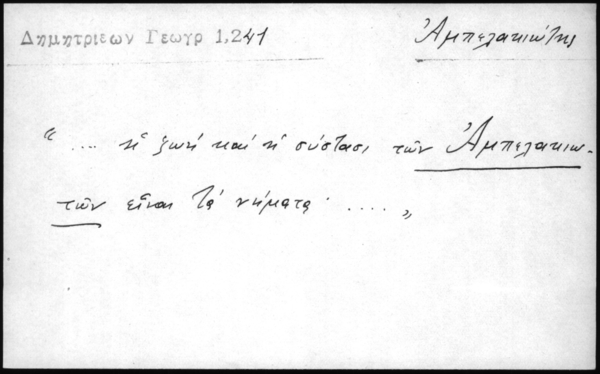 Δημητριεων Γεωγρ 1,241
Ἀμπελακιώτης
"... ἡ ζωή καί ἡ σύστασι τῶν Ἀμπελακιω-
τῶν εἶναι τά νήματα· ...."